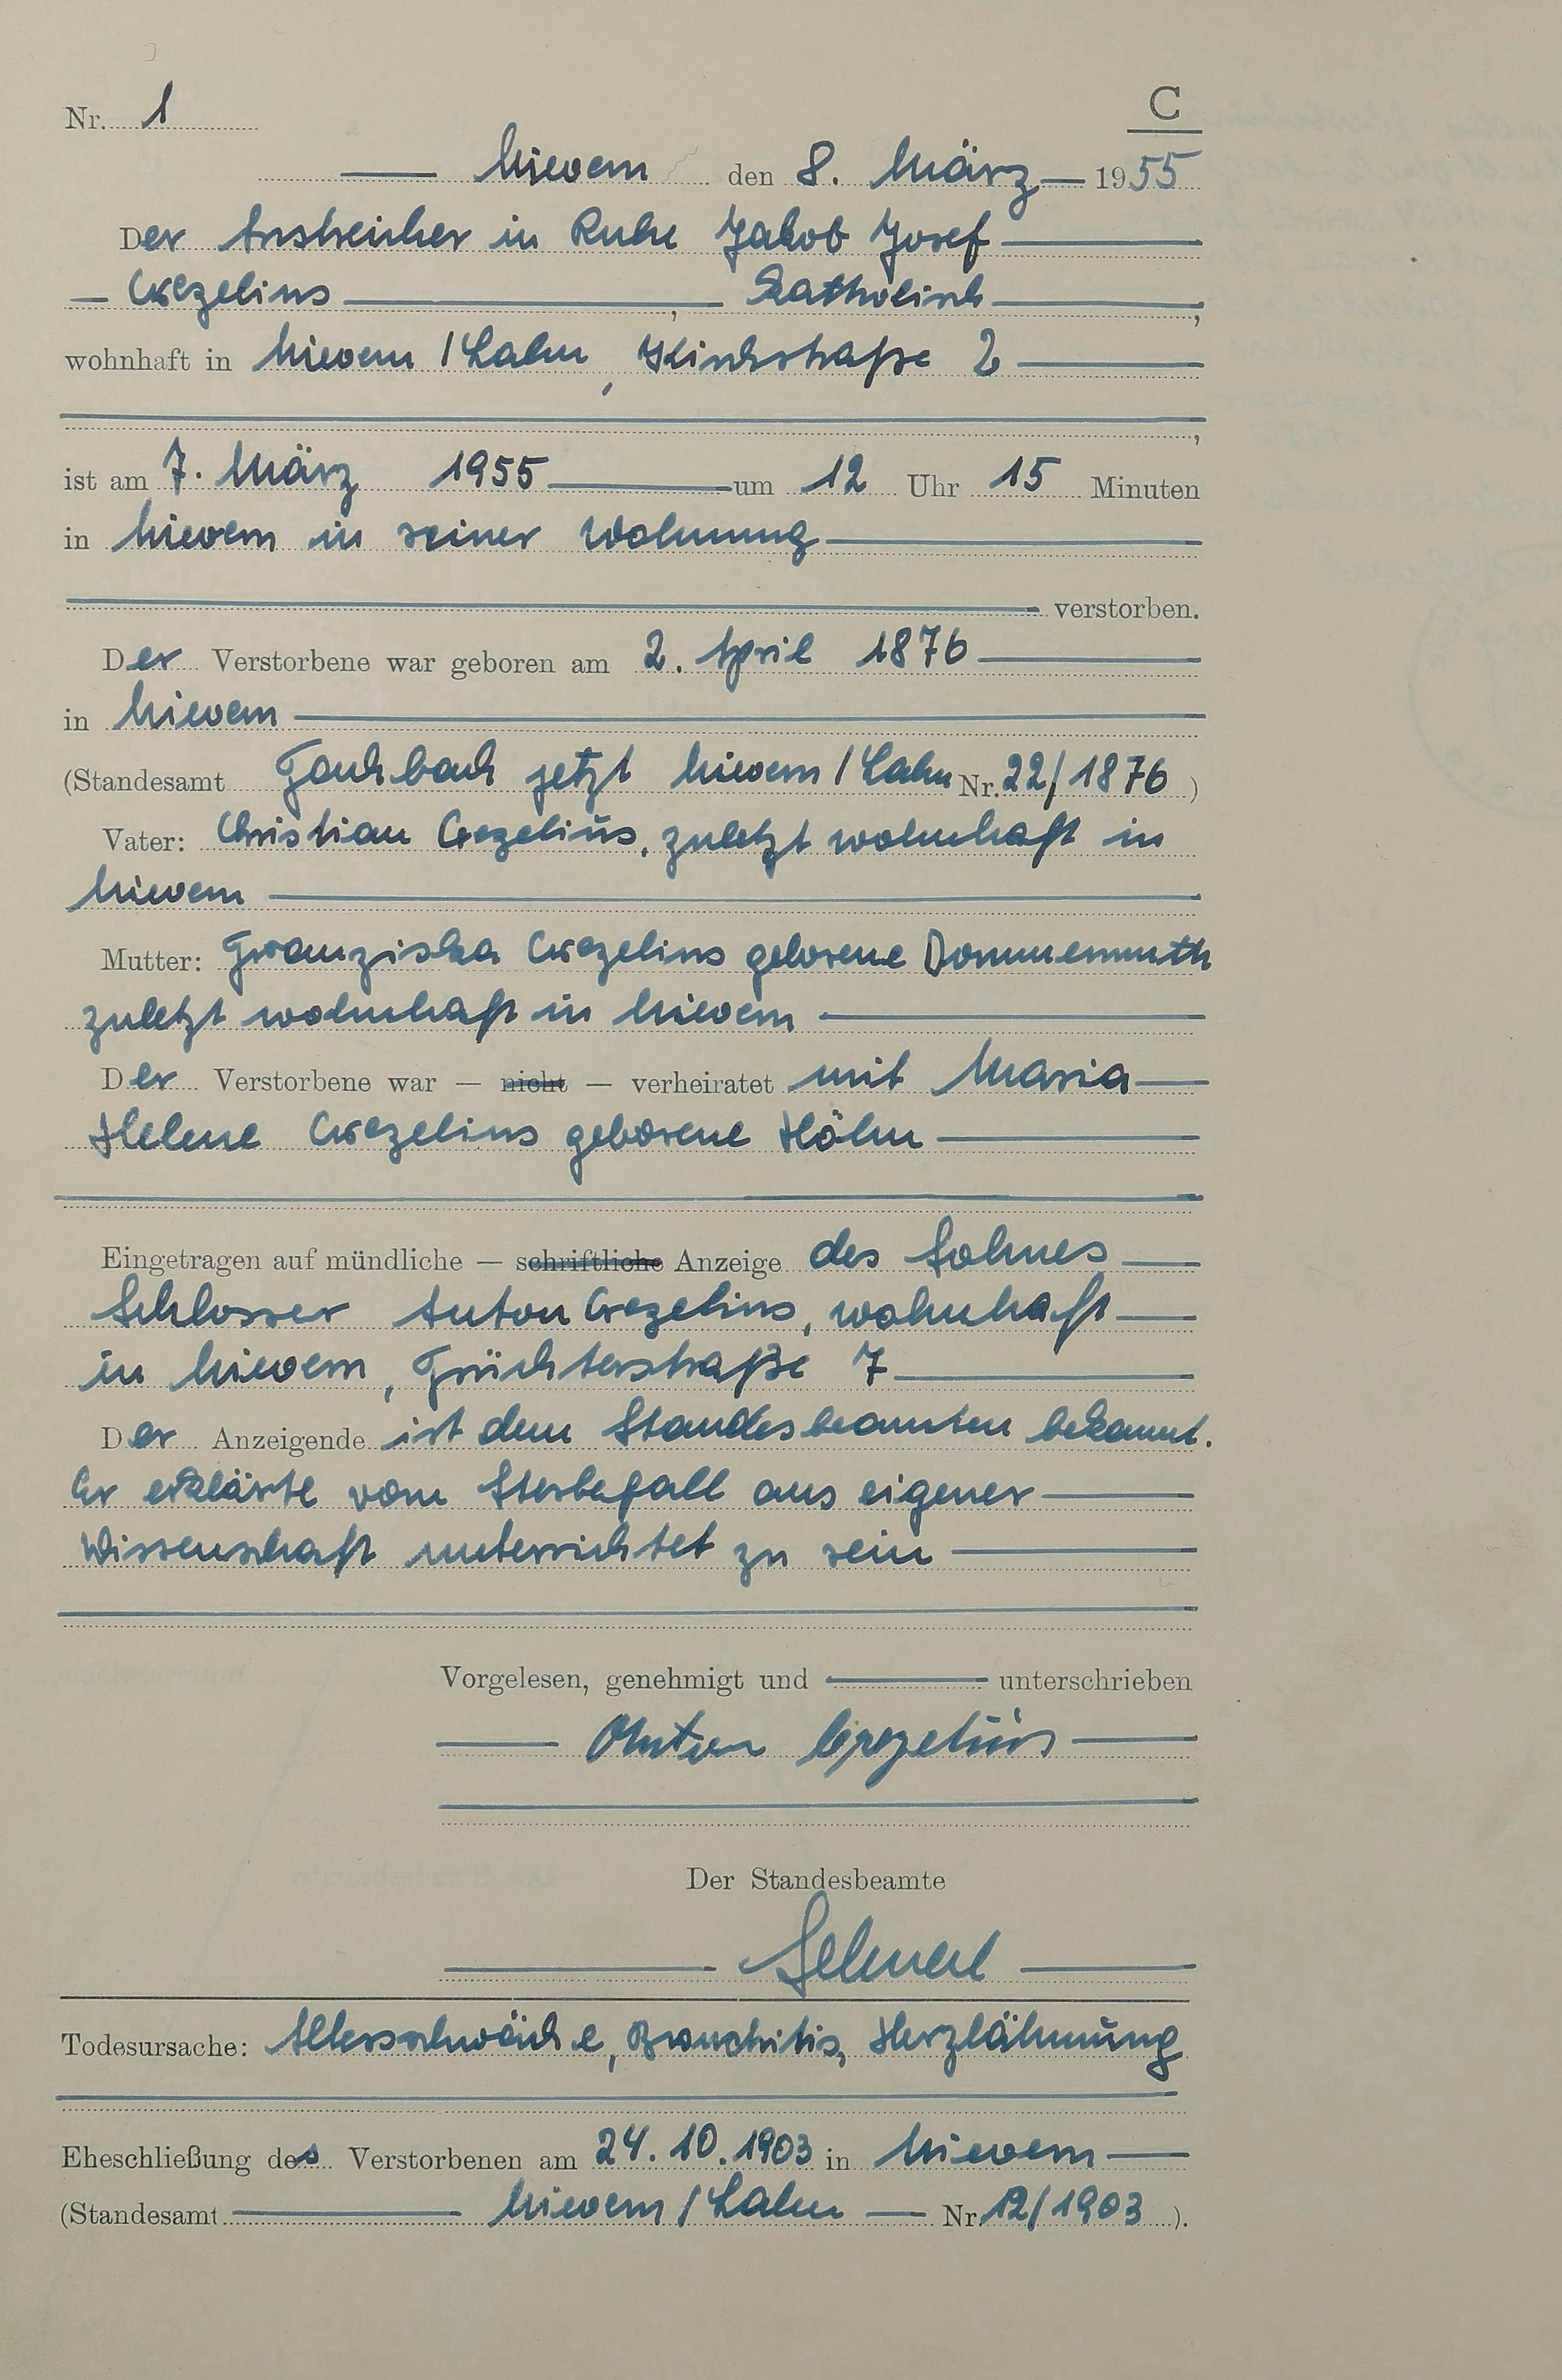 Nr. 1
C
Mievern den 8. März 1955
Der Anstreicher in Ruhe Jakob Josef
Crezelius, Katholisch,
wohnhaft in Mievern / Lahn, Kirchstraße 2
,
ist am 7. März 1955 um 12 Uhr 15 Minuten
in Mievern in seiner Wohnung
verstorben.
Der Verstorbene war geboren am 2. April 1876
in Mievern
(Standesamt Fachbach jetzt Mievern / Lahn Nr. 22/1876)
Vater: Christian Crezelius, zuletzt wohnhaft in
Mievern
Mutter: Franziska Crezelius geborene Dommermuth
zuletzt wohnhaft in Mievern
Der Verstorbene war — nicht — verheiratet mit Maria
Helene Crezelius geborene Höhn
Eingetragen auf mündliche — schriftliche Anzeige des Sohnes
Schlosser Anton Crezelius, wohnhaft
in Mievern, Früchterstraße 7
Der Anzeigende ist dem Standesbeamten bekannt.
Er erklärte vom Sterbefall aus eigener
Wissenschaft unterrichtet zu sein
Vorgelesen, genehmigt und unterschrieben
Anton Crezelius
Der Standesbeamte
Todesursache: Altersschwäche, Bronchitis, Herzlähmung
Eheschließung des Verstorbenen am 24.10.1903 in Mievern
(Standesamt Mievern / Lahn Nr. 12/1903).